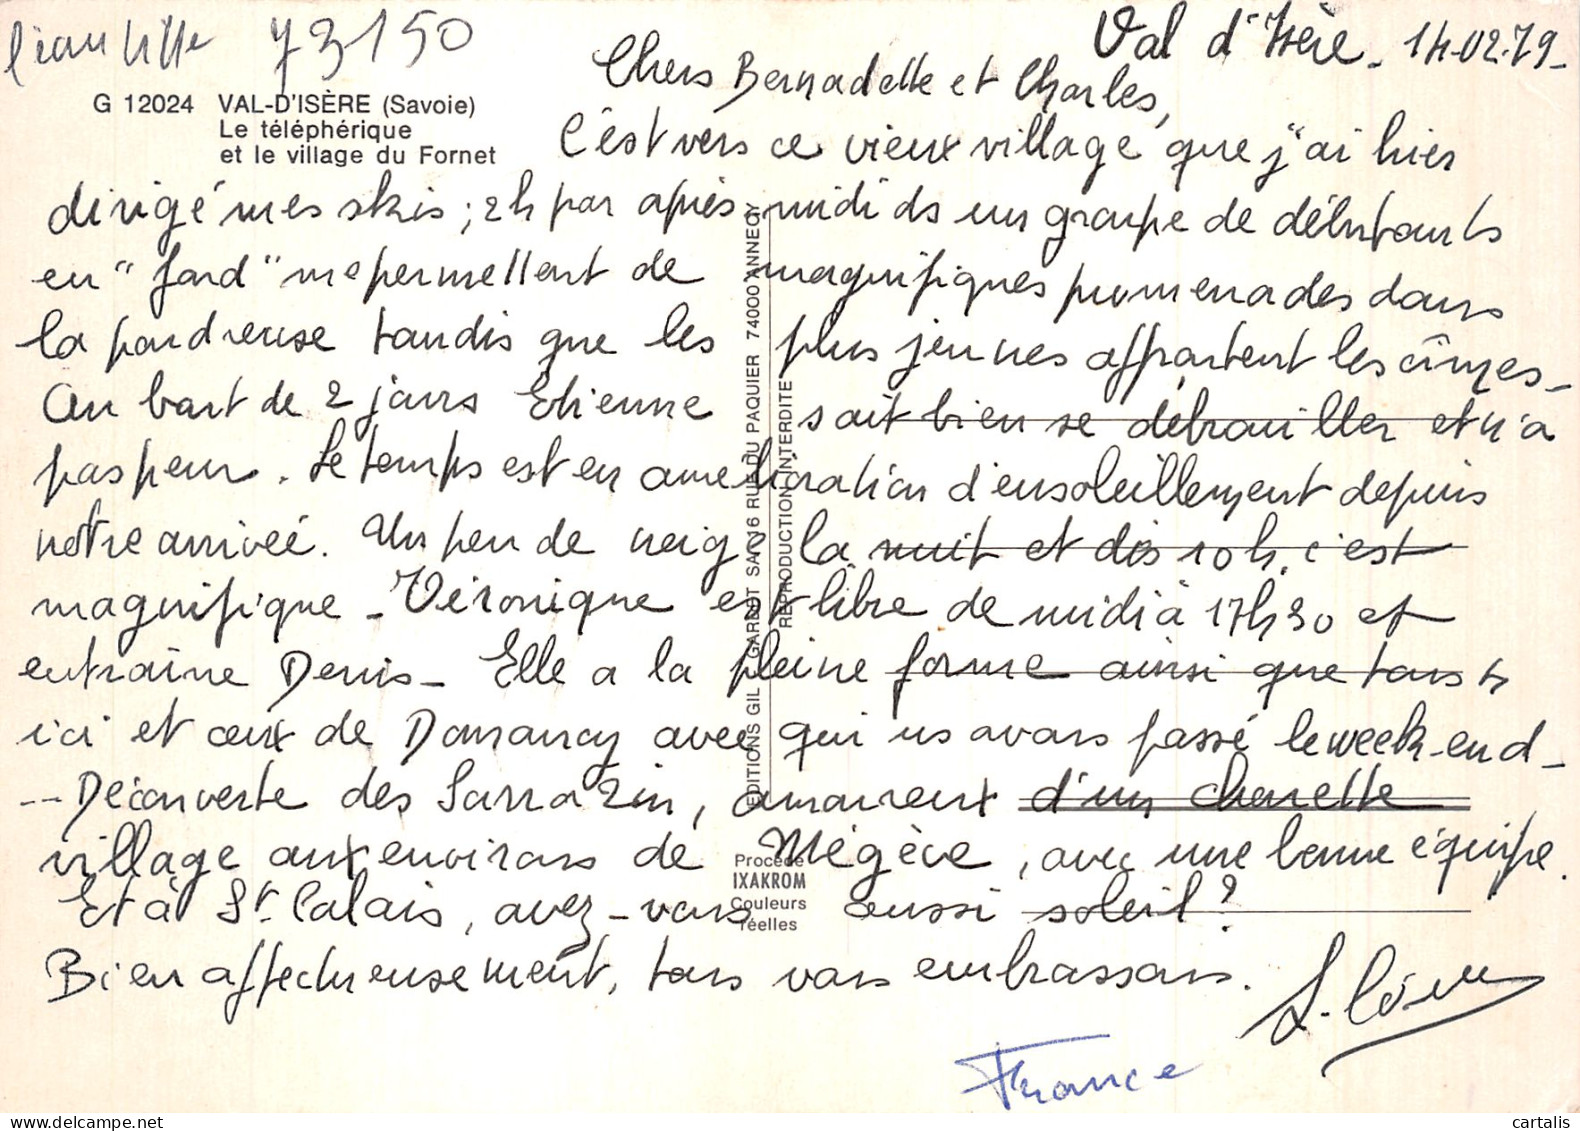 73150
Val d'Isère - 14-02-79 -
Chers Bernadette et Charles,
G 12024 VAL-D'ISÈRE (Savoie)
Le téléphérique
et le village du Fornet
C'est vers ce vieux village que j'ai hier
dirigé mes skis ; 2h par après-midi ds un groupe de débutants
en "fond" me permettent de magnifiques promenades dans
la poudreuse tandis que les plus jeunes arpentent les cîmes -
Au bout de 2 jours Etienne sait bien se débrouiller et n'a
pas peur. Le temps est en amélioration d'ensoleillement depuis
notre arrivée. Un peu de neige la nuit et dès 10h, c'est
magnifique - Véronique est libre de midi à 17h30 et
entraîne Denis - Elle a la pleine forme ainsi que tous ts
ici et ceux de Domancy avec qui ns avons passé le week-end -
-- Découverte des Sarrazin, amoureux d'un
village aux environs de Megève, avec une bonne équipe.
Et à St. Calais, avez-vous aussi soleil ?
Bien affectueusement, tous vous embrassons.
France
EDITIONS GIL GARDET SA 16 RUE DU PAQUIER 74000 ANNECY
REPRODUCTION INTERDITE
Procédé
IXAKROM
Couleurs
réelles
cartalis